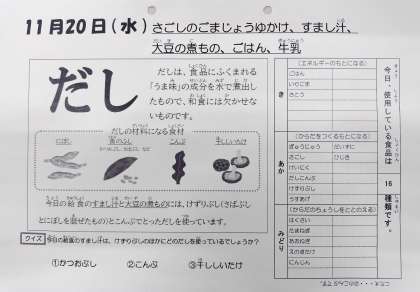 11月20日(水) さごしのごまじょうゆかけ、すまし汁、
大豆の煮もの、ごはん、牛乳
だし
だしは、食品にふくまれる
「うま味」の成分を水で煮出し
たもので、和食には欠かせな
いものです。
だしの材料になる食材
にぼし
こんぶ
干ししいたけ
今日の給食のすまし汁と大豆の煮ものには、けずりぶし(さばぶし
とにぼしを混ぜたもの)とこんぶでとっただしを使っています。
クイズ 今日の給食のすまし汁は、けずりぶしのほかにどのだしを使っているでしょうか?
①かつおぶし ②こんぶ ③干ししいたけ
今日、使用している食品は
16
種類です。
き
(エネルギーのもとになる)
ごはん
いりごま
さとう
あか
(からだをつくるもとになる)
ぎゅうにゅう だいず
さごし ひじき
けいにく
だしこんぶ
けずりぶし
うすあげ
みどり
(からだのちょうしをととのえる)
はくさい
たまねぎ
あおねぎ
えのきたけ
にんじん